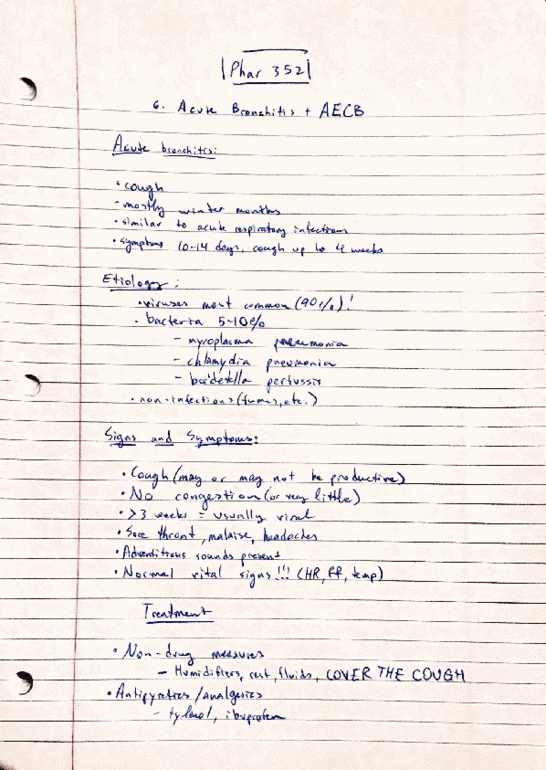 Phar 352
6. Acute Bronchitis + AECB
Acute bronchitis:
• cough
- mostly winter months
• similar to acute respiratory infections
• symptoms 10-14 days, cough up to 4 weeks
Etiology:
• viruses most common (90%)!
• bacteria 5-10%
- myroplasma pneumonia
- chlamydia pneumonia
- bordetella pertussis
• non-infectious (fumes, etc.)
Signs and Symptoms:
• Cough (may or may not be productive)
• No congestion (or very little)
• >3 weeks = usually viral
• Sore throat, malaise, headaches
• Adventitious sounds present
• Normal vital signs!!! (HR, RR, temp)
Treatment
• Non-drug measures
- Humidifiers, rest, fluids, COVER THE COUGH
• Antipyretics/analgesics
- tylenol, ibuprofen